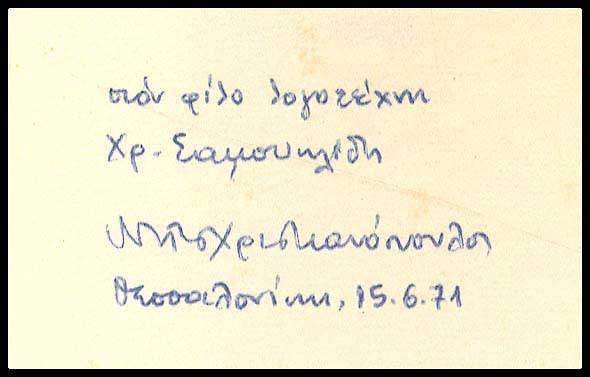 στὸν φίλο λογοτέχνη
Χρ. Σαμουηλίδη
Ντῖνος Χριστιανόπουλος
Θεσσαλονίκη, 15.6.71